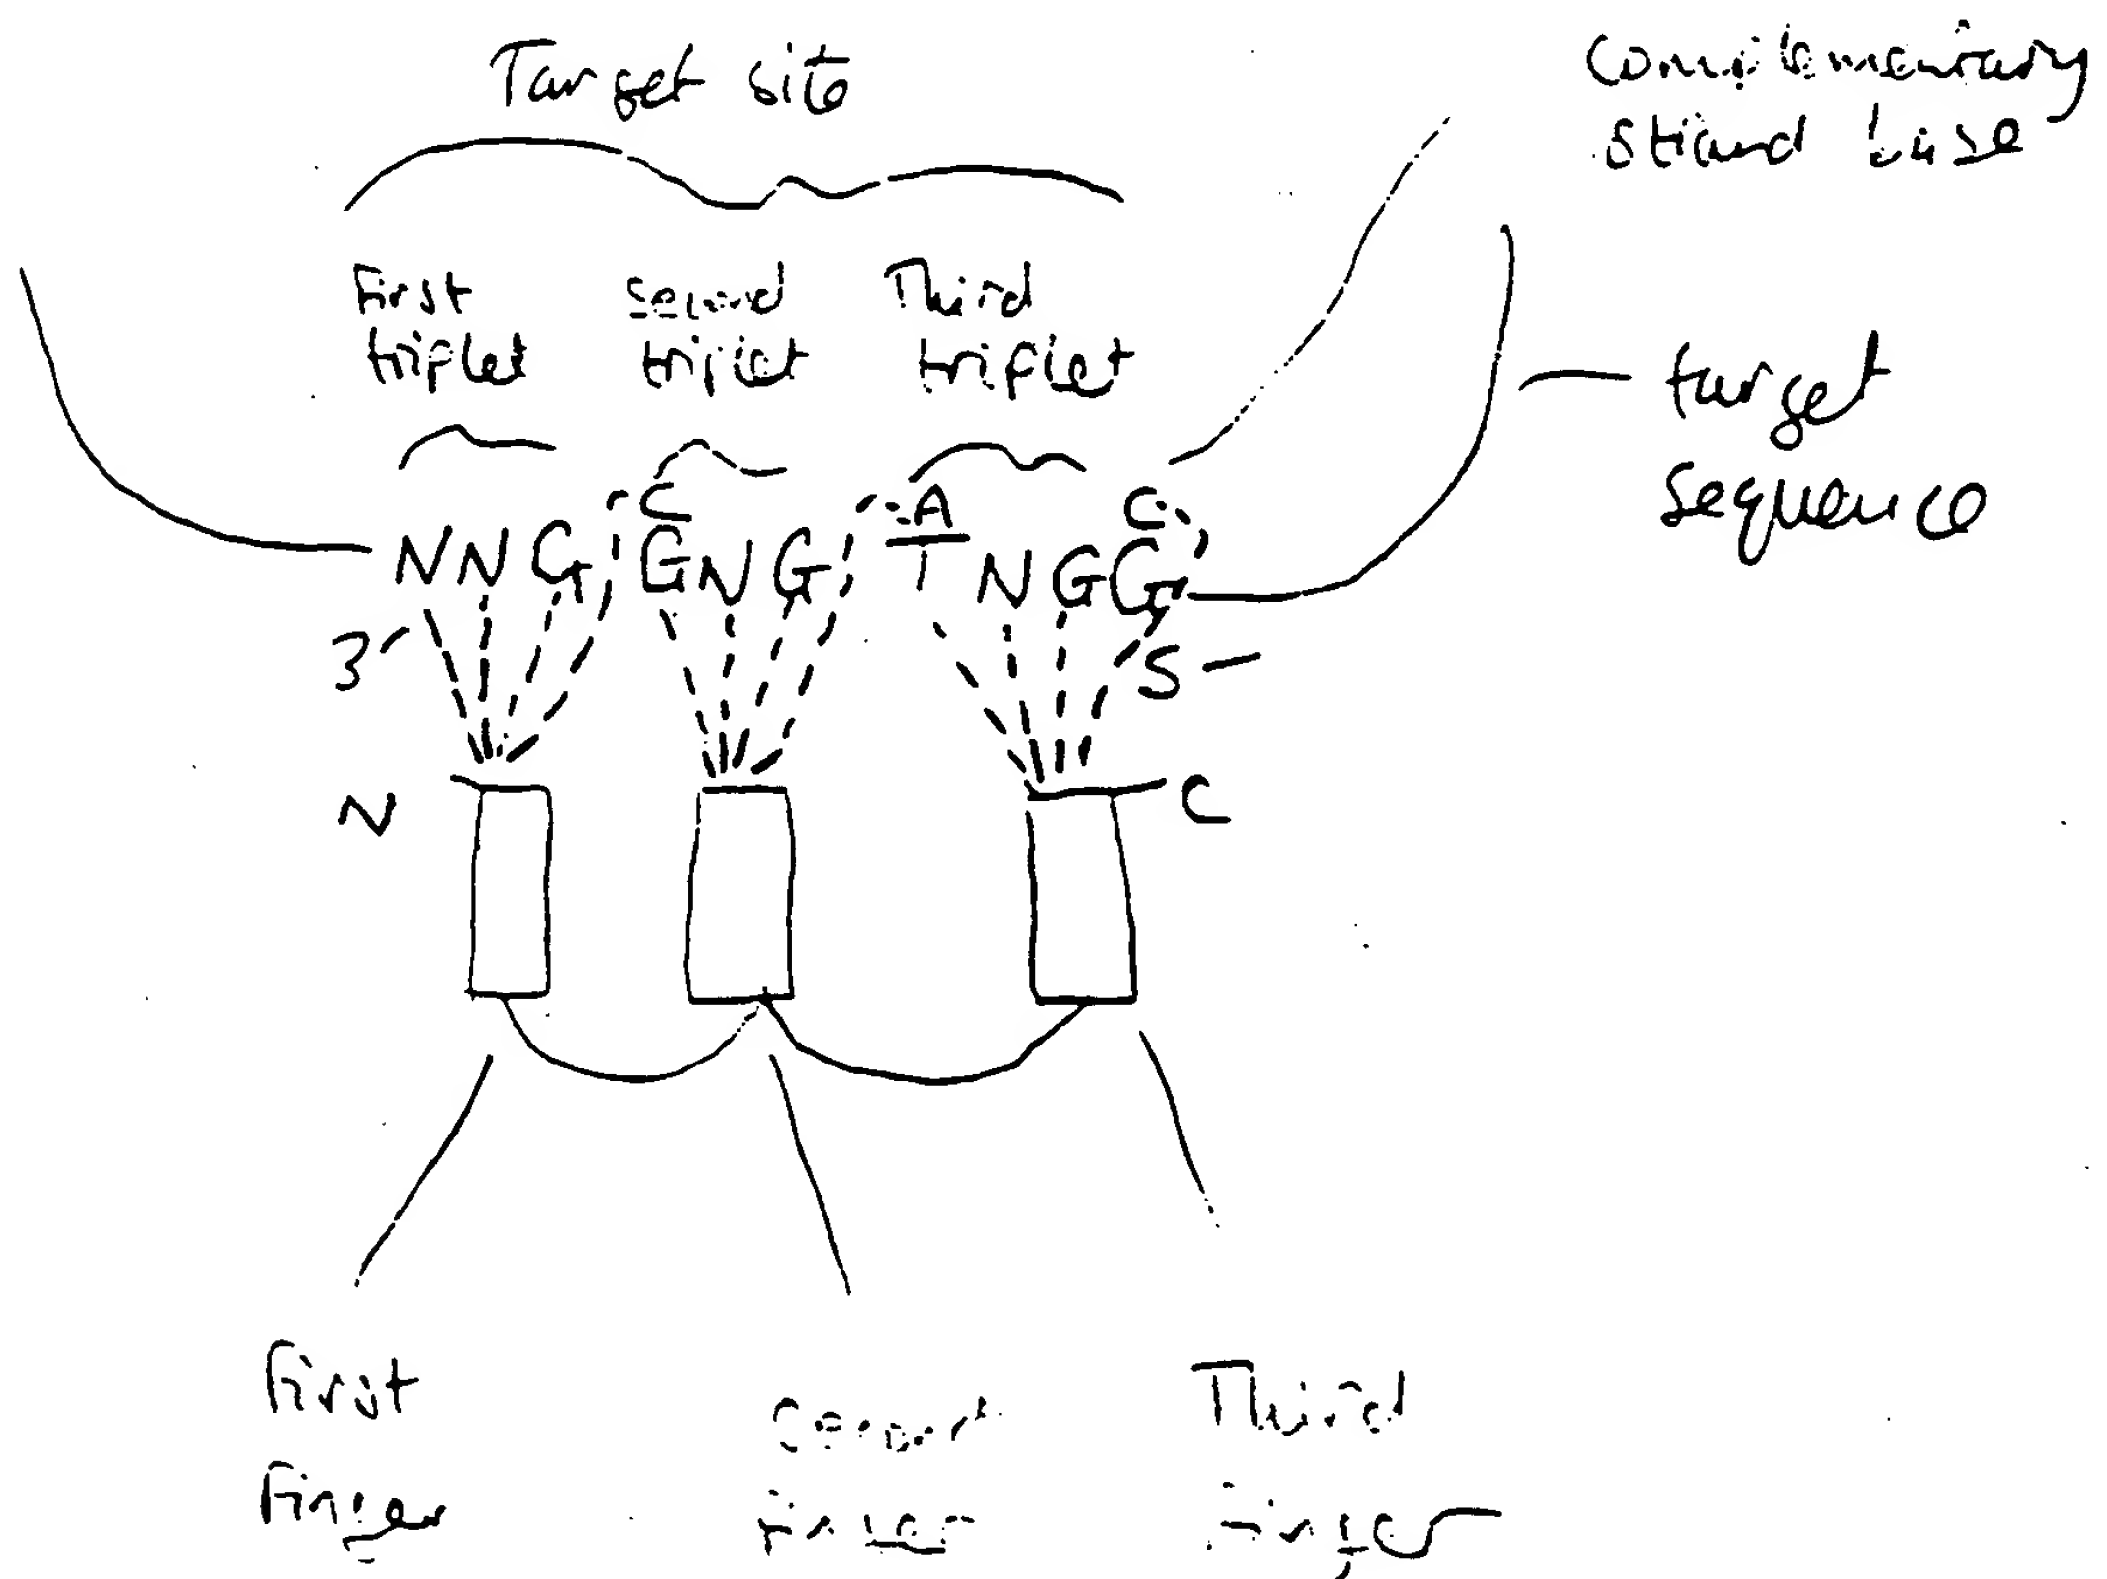 Target site
Complementary
strand base
First
triplet
Second
triplet
Third
triplet
target
sequence
C
A
C
N N G G N G T N G G
3'
5
N
C
First
Finger
Second
Finger
Third
Finger